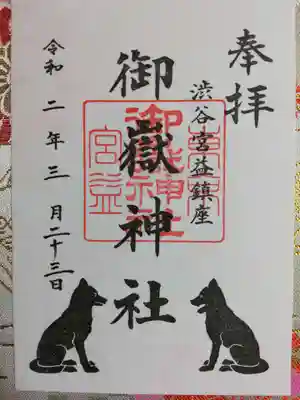 奉拝
渋谷宮益鎮座
御嶽神社
令和二年三月二十三日
宮益